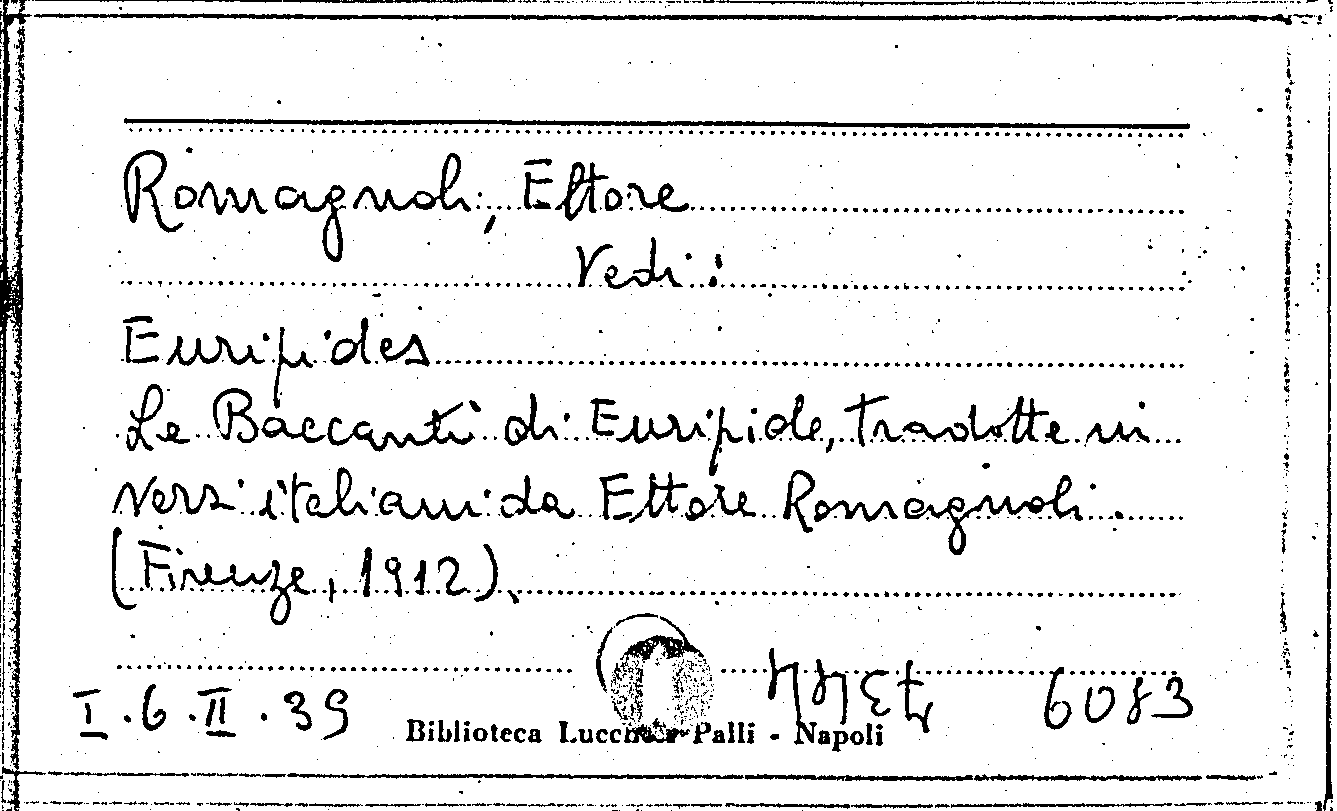 Romagnoli, Ettore
Vedi:
Euripides
Le Baccanti di Euripide, tradotte in
versi italiani da Ettore Romagnoli.
(Firenze, 1912).
I.6.II.39
6083
Biblioteca Lucchesi-Palli - Napoli